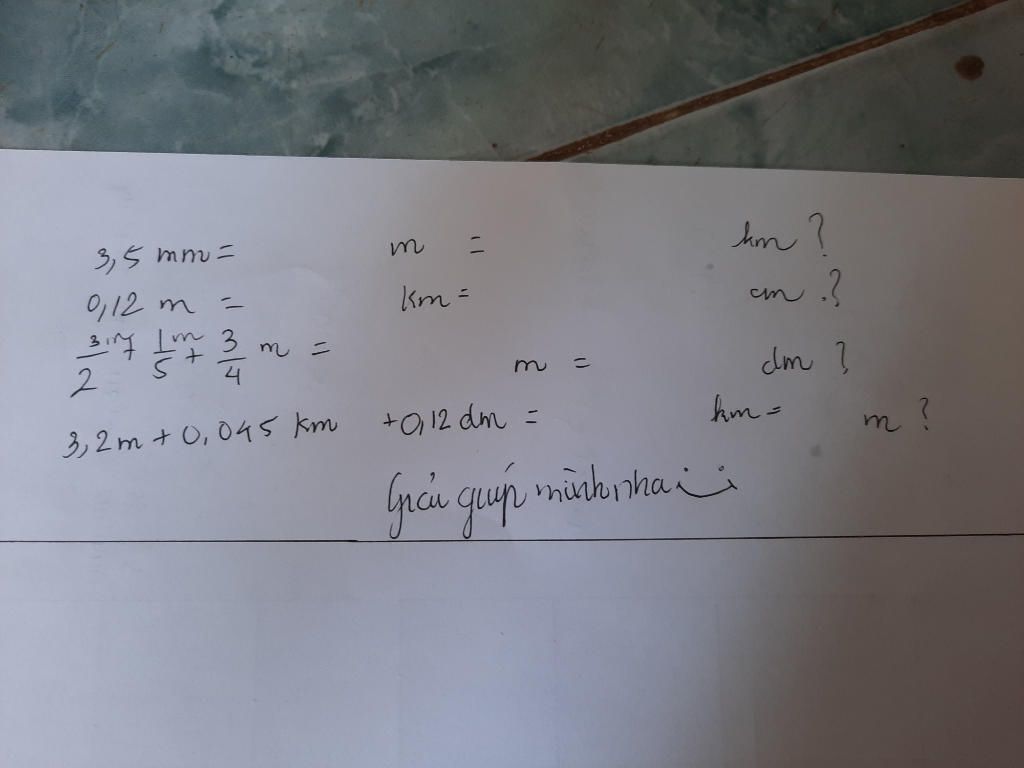 3,5 mm = m = hm ?
0,12 m = km = cm ?
3/2 m + 1/5 m + 3/4 m = m = dm ?
3,2m + 0,045 km + 0,12 dm = hm = m ?
Giải giúp mình nha :)